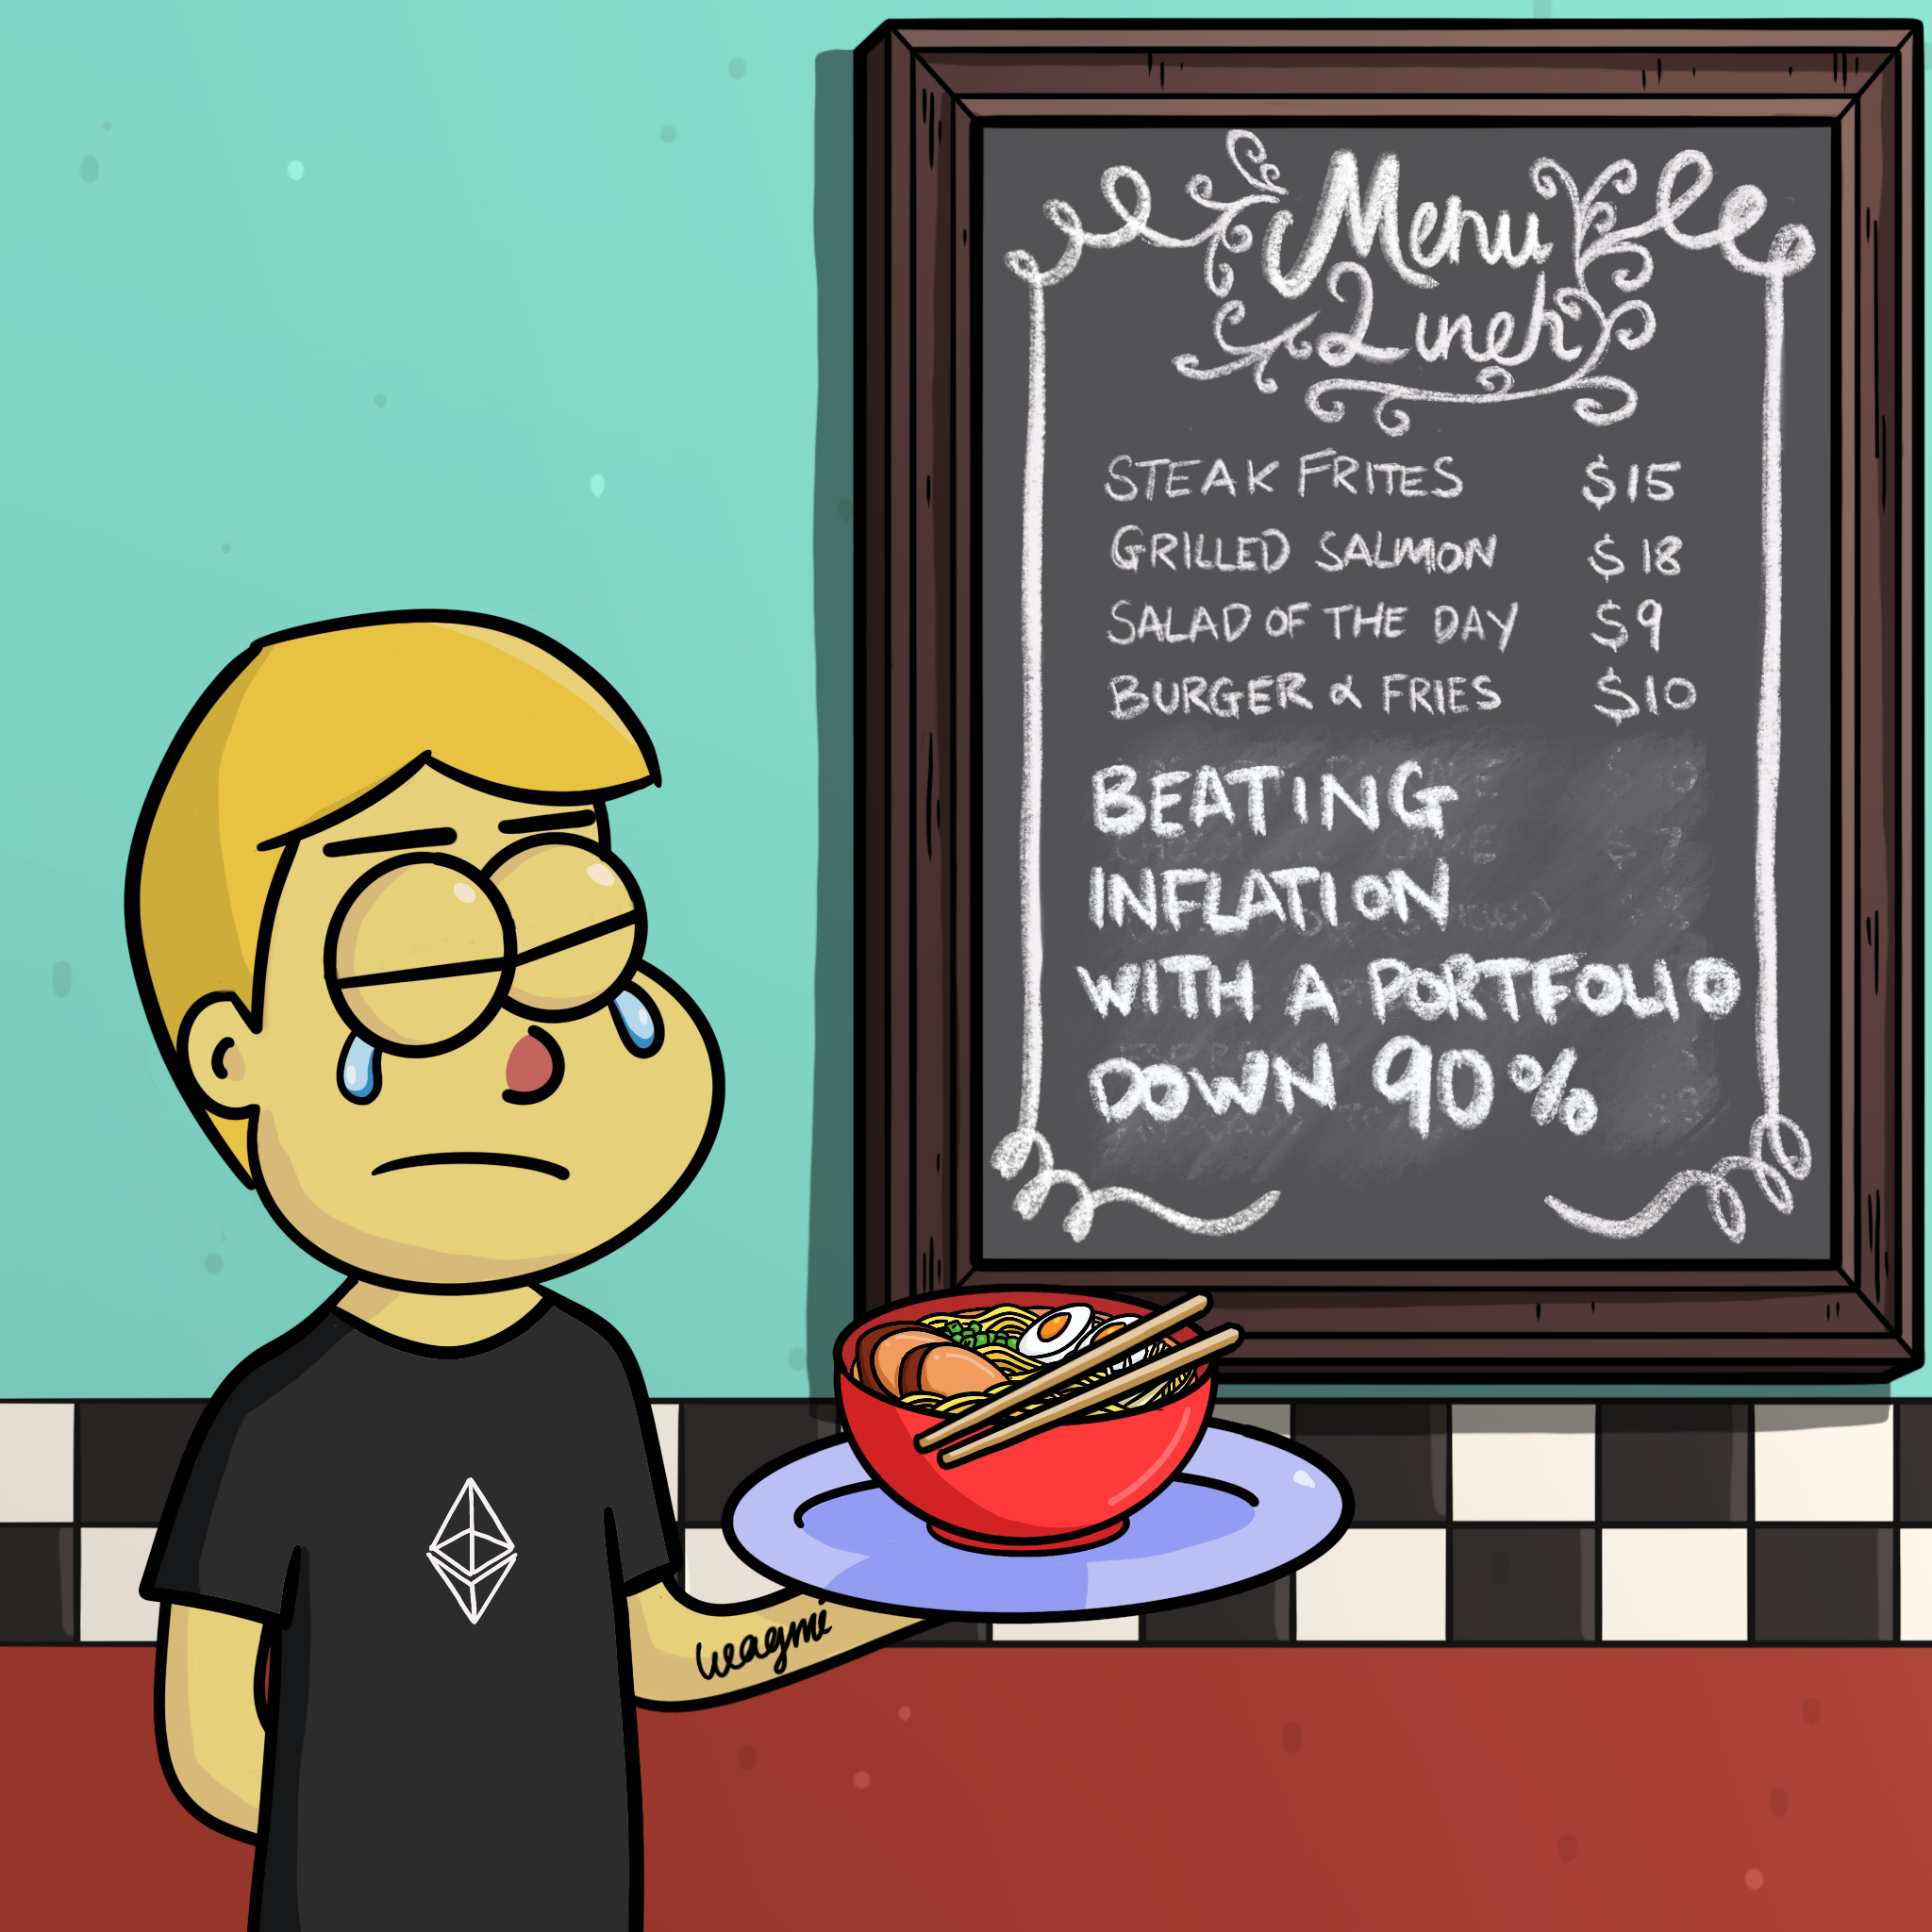 Menu
Lunch
STEAK FRITES $15
GRILLED SALMON $18
SALAD OF THE DAY $9
BURGER & FRIES $10
BEATING
INFLATION
WITH A PORTFOLIO
DOWN 90%
wagmi